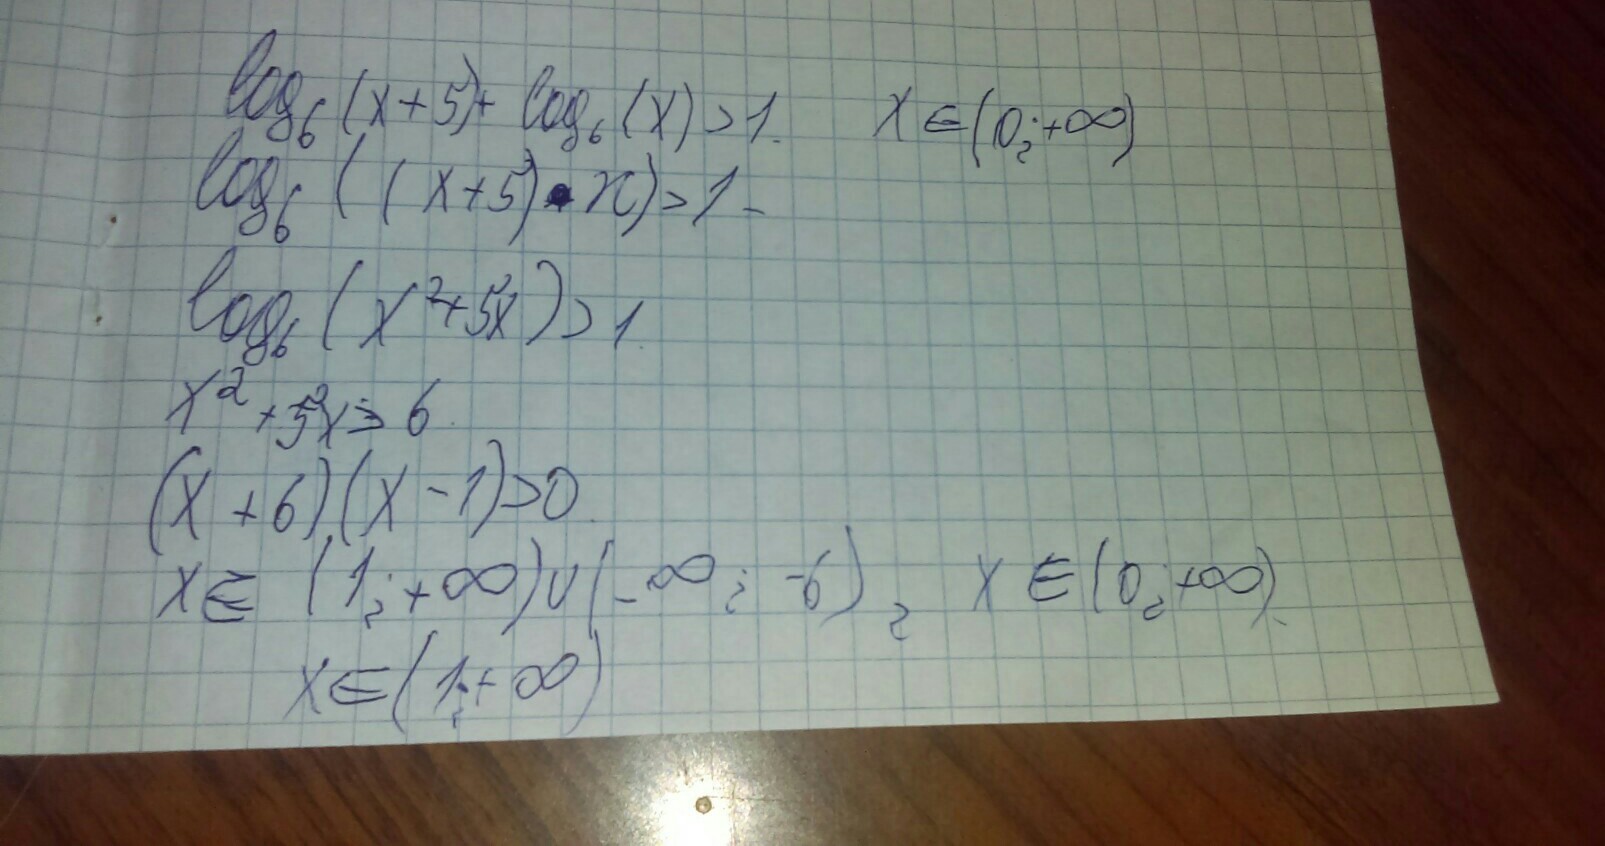 log₆(x+5)+ log₆(x)>1. x∈(0;+∞)
log₆((x+5)•x)>1-
log₆(x²+5x)>1.
x²+5x>6.
(x+6)(x-1)>0.
x∈ (1;+∞)∪(-∞; -6), x∈(0;+∞).
x∈(1;+∞)